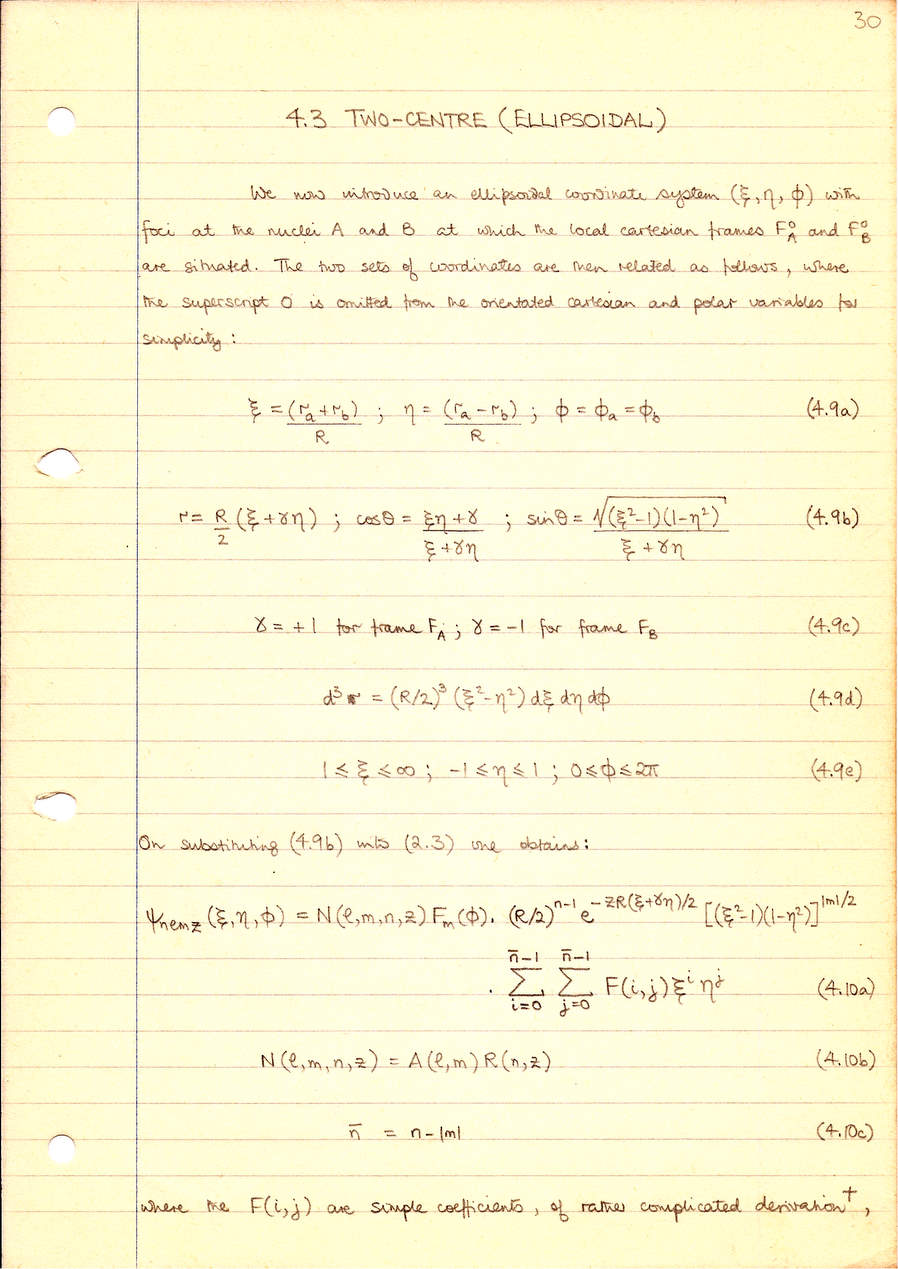 30
4.3 TWO-CENTRE (ELLIPSOIDAL)
We now introduce an ellipsoidal coordinate system (ξ, η, φ) with
foci at the nuclei A and B at which the local cartesian frames F_A^0 and F_B^0
are situated. The two sets of coordinates are then related as follows, where
the superscript 0 is omitted from the orientated cartesian and polar variables for
simplicity:
ξ = (r_a + r_b)/R ; η = (r_a - r_b)/R ; φ = φ_a = φ_b (4.9a)
r = R/2 (ξ + γη) ; cosθ = (ξη + γ)/(ξ + γη) ; sinθ = √((ξ²-1)(1-η²))/(ξ + γη) (4.9b)
γ = +1 for frame F_A ; γ = -1 for frame F_B (4.9c)
d³r = (R/2)³ (ξ² - η²) dξ dη dφ (4.9d)
1 ≤ ξ ≤ ∞ ; -1 ≤ η ≤ 1 ; 0 ≤ φ ≤ 2π (4.9e)
On substituting (4.9b) into (2.3) one obtains:
ψ_nemz (ξ, η, φ) = N(ℓ,m,n,z) F_m(φ). (R/2)^(n-1) e^(-zR(ξ+γη)/2) [(ξ²-1)(1-η²)]^(|m|/2)
. Σ_{i=0}^{n̄-1} Σ_{j=0}^{n̄-1} F(i,j) ξ^i η^j (4.10a)
N(ℓ,m,n,z) = A(ℓ,m) R(n,z) (4.10b)
n̄ = n-|m| (4.10c)
where the F(i,j) are simple coefficients, of rather complicated derivation†,